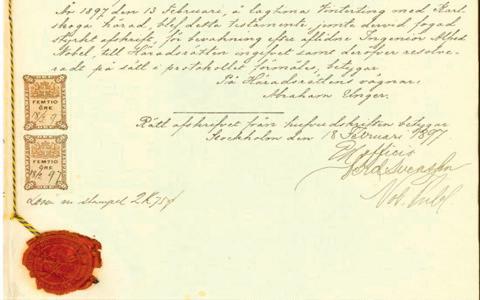 År 1897 den 13 Februari, å lagtima Vinterting med Karl-
skoga härad, blef detta testamente, jemte dervid fogad
styrkt afskrift, för bevakning efter aflidne Ingeniör Alfred
Nobel, till Häradsrätten ingifvet samt deröfver resolve-
radt på sätt i protokollet förmäles, betygar
På Häradsrättens vägnar:
Abraham Unger.
Rätt afskrifvet från hufvudskriften betygar
Stockholm den 18 Februari 1897.
Ex officio
FEMTIO
ÖRE
FEMTIO
ÖRE
18/2 97
Lösen m stämpel 2 K 75 ö
Not. Publ.